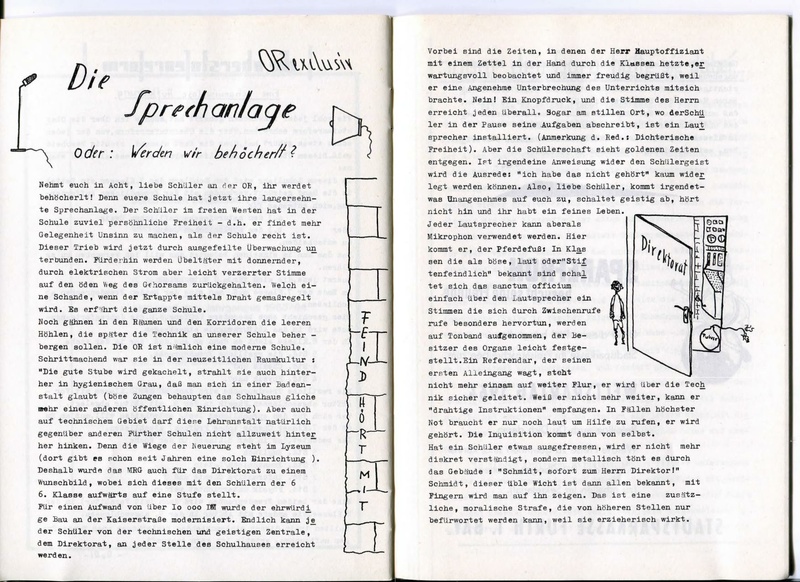 ORexclusiv
Die
Sprechanlage
oder: Werden wir behöcherlt?
Nehmt euch in Acht, liebe Schüler an der OR, ihr werdet
behöcherlt! Denn euere Schule hat jetzt ihre langersehn-
te Sprechanlage. Der Schüler im freien Westen hat in der
Schule zuviel persöhnliche Freiheit - d.h. er findet mehr
Gelegenheit Unsinn zu machen, als der Schule recht ist.
Dieser Trieb wird jetzt durch ausgefeilte Überwachung un
terbunden. Förderhin werden Übeltäter mit donnernder,
durch elektrischen Strom aber leicht verzerrter Stimme
auf den öden Weg des Gehorsams zurückgehalten. Welch ei-
ne Schande, wenn der Ertappte mittels Draht gemaßregelt
wird. Es erfährt die ganze Schule.
Noch gähnen in den Räumen und den Korridoren die leeren
Höhlen, die später die Technik an unserer Schule beher -
bergen sollen. Die OR ist nämlich eine moderne Schule.
Schrittmachend war sie in der neuzeitlichen Raumkultur :
"Die gute Stube wird gekachelt, strahlt sie auch hinter-
her in hygienischem Grau, daß man sich in einer Badean-
stalt glaubt (böse Zungen behaupten das Schulhaus gliche
mehr einer anderen öffentlichen Einrichtung). Aber auch
auf technischem Gebiet darf diese Lehranstalt natürlich
gegenüber anderen Fürther Schulen nicht allzuweit hinter
her hinken. Denn die Wiege der Neuerung steht im Lyzeum
(dort gibt es schon seit Jahren eine solch Einrichtung ).
Deshalb wurde das MRG auch für das Direktorat zu einem
Wunschbild, wobei sich dieses mit den Schülern der 6
6. Klasse aufwärts auf eine Stufe stellt.
Für einen Aufwand von über 10 000 DM wurde der ehrwürdi
ge Bau an der Kaiserstraße modernisiert. Endlich kann je
der Schüler von der technischen und geistigen Zentrale,
dem Direktorat, an jeder Stelle des Schulhauses erreicht
werden.
FEIND HÖRT MIT
Vorbei sind die Zeiten, in denen der Herr Hauptoffiziant
mit einem Zettel in der Hand durch die Klassen hetzte,er
wartungsvoll beobachtet und immer freudig begrüßt, weil
er eine Angenehme Unterbrechung des Unterrichts mitsich
brachte. Nein! Ein Knopfdruck, und die Stimme des Herrn
erreicht jeden überall. Sogar am stillen Ort, wo derSchü
ler in der Pause seine Aufgaben abschreibt, ist ein Laut
sprecher installiert. (Anmerkung d. Red.: Dichterische
Freiheit). Aber die Schülerschaft sieht goldenen Zeiten
entgegen. Ist irgendeine Anweisung wider den Schülergeist
wird die Ausrede: "ich habe das nicht gehört" kaum wider
legt werden können. Also, liebe Schüler, kommt irgendet-
was Unangenehmes auf euch zu, schaltet geistig ab, hört
nicht hin und ihr habt ein feines Leben.
Jeder Lautsprecher kann abermals
Mikrophon verwendet werden. Hier
kommt er, der Pferdefuß: In Klas
sen die als böse, laut oder"Stif
tenfeindlich" bekannt sind schal
tet sich das sanctum officium
einfach über den Lautsprecher ein
Stimmen die sich durch Zwischenrufe
rufe besonders hervortun, werden
auf Tonband aufgenommen, der Be-
sitzer des Organs leicht festge-
stellt.Ein Referendar, der seinen
ersten Alleingang wagt, steht
nicht mehr einsam auf weiter Flur, er wird über die Tech
nik sicher geleitet. Weiß er nicht mehr weiter, kann er
"drahtige Instruktionen" empfangen. In Fällen höchster
Not braucht er nur noch laut um Hilfe zu rufen, er wird
gehört. Die Inquisition kommt dann von selbst.
Hat ein Schüler etwas ausgefressen, wird er nicht mehr
diskret verständigt, sondern metallisch tönt es durch
das Gebäude : "Schmidt, sofort zum Herrn Direktor!"
Schmidt, dieser üble Wicht ist dann allen bekannt, mit
Fingern wird man auf ihn zeigen. Das ist eine zusätz-
liche, moralische Strafe, die von höheren Stellen nur
befürwortet werden kann, weil sie erzieherisch wirkt.
Direktorat